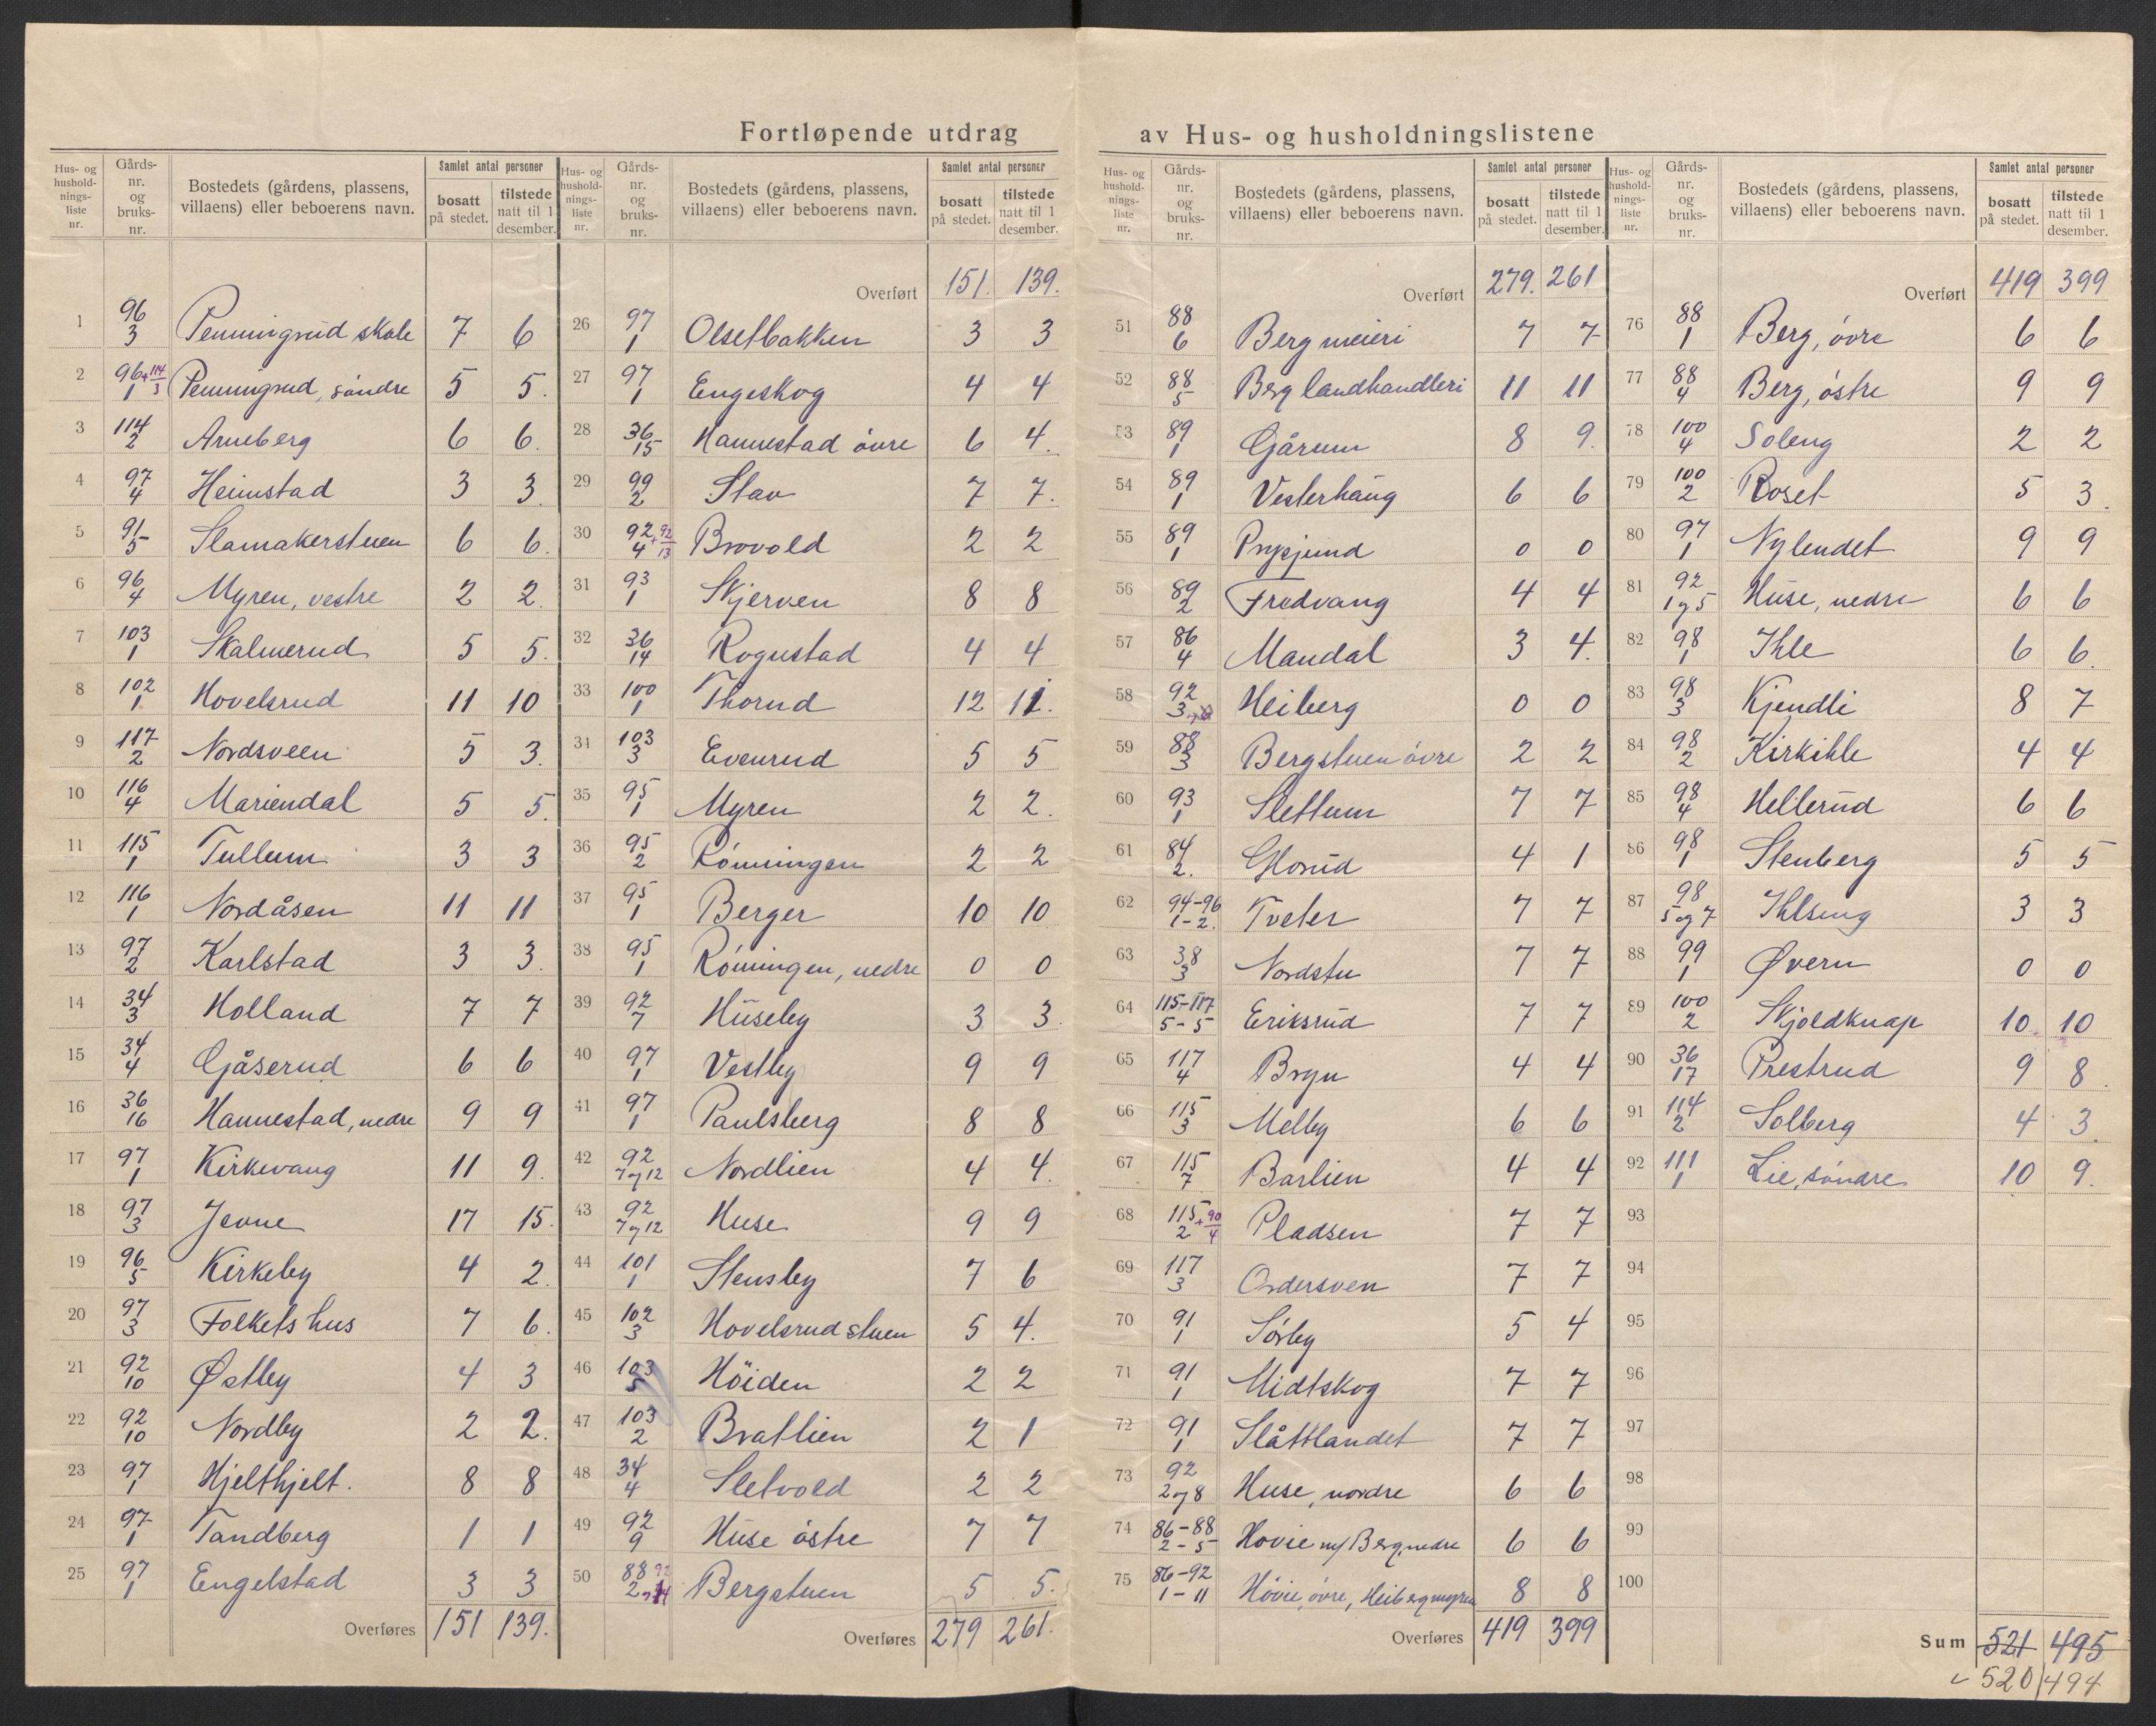 Fortløpende utdrag av Hus- og husholdningslistene
Hus- og hushold-nings-liste nr. | Gårds-nr. og bruks-nr. | Bostedets (gårdens, plassens, villaens) eller beboerens navn. | Samlet antal personer | bosatt på stedet. | tilstede natt til 1 desember.
1 96/3 Penningrud skole 7 6
2 96/1 + 114/3 Penningrud, søndre 5 5.
3 114/2 Arneberg 6 6.
4 97/4 Heimstad 3 3
5 91/5 Slamakerstuen 6 6.
6 96/4 Myren, vestre 2 2.
7 103/1 Skalmerud 5 5.
8 102/1 Hovelsrud 11 10
9 117/2 Nordsveen 5 3.
10 116/4 Mariendal 5 5.
11 115/1 Tullum 3 3
12 116/1 Nordåsen 11 11
13 97/2 Karlstad 3 3.
14 34/3 Holland 7 7
15 34/4 Gåserud 6 6
16 36/16 Hannestad, nedre 9 9
17 97/1 Kirkevang 11 9.
18 97/3 Jevne 17 15.
19 96/5 Kirkeby 4 2.
20 97/3 Folkets hus 7 6.
21 92/10 Østby 4 3
22 92/10 Nordby 2 2.
23 97/1 Hjelthjelt. 8 8
24 97/1 Tandberg 1 1
25 97/1 Engelstad 3 3
Overføres 151 139.
Hus- og hushold-nings-liste nr. | Gårds-nr. og bruks-nr. | Bostedets (gårdens, plassens, villaens) eller beboerens navn. | Samlet antal personer | bosatt på stedet. | tilstede natt til 1 desember.
Overført 151. 139.
26 97/1 Olsetbakken 3 3
27 97/1 Engeskog 4 4
28 36/15 Hannestad øvre 6 4.
29 99/2 Stav 7 7.
30 92/4 + 92/13 Brovold 2 2
31 93/1 Skjerven 8 8
32 36/14 Rognstad 4 4
33 100/1 Thorud 12 11.
34 103/3 Evenrud 5 5
35 95/1 Myren 2 2.
36 95/2 Rønningen 2 2
37 95/1 Berger 10 10
38 95/1 Rønningen, nedre 0 0
39 92/7 Huseby 3 3.
40 97/1 Vestby 9 9
41 97/1 Paulsberg 8 8
42 92/7 og 12 Nordlien 4 4.
43 92/7 og 12 Huse 9 9
44 101/1 Stensby 7 6
45 102/3 Hovelsrudstuen 5 4.
46 103/5 Høiden 2 2
47 103/2 Bratlien 2 1
48 34/4 Sletvold 2 2
49 92/9 Huse østre 7 7
50 88/2 Bergstuen 5 5.
Overføres 279 261.
Hus- og hushold-nings-liste nr. | Gårds-nr. og bruks-nr. | Bostedets (gårdens, plassens, villaens) eller beboerens navn. | Samlet antal personer | bosatt på stedet. | tilstede natt til 1 desember.
Overført 279. 261
51 88/6 Berg meieri 7 7
52 88/5 Berg landhandleri 11 11
53 89/1 Gårum 8 9.
54 89/1 Vesterhaug 6 6
55 89/1 0 0
56 89/2 Fredvang 4 4
57 86/4 Mandal 3 4.
58 92/3 Heiberg 0 0
59 88/3 Bergstuen øvre 2 2
60 93/1 Slettum 7 7
61 84/2. Glorud 4 1
62 94-96/1-2. Tveter 7 7
63 38/3 Nordstu 7 7
64 115-117/5-5 Eriksrud 7 7
65 117/4 Bryn 4 4
66 115/3 Melby 6 6
67 115/7 Barlien 4 4
68 115/2 + 90/4 Pladsen 7 7
69 117/3 Ordersven 7 7
70 91/1 Sørby 5 4
71 91/1 Midtskog 7 7
72 91/1 Slåttlandet 7 7
73 92/2 og 8 Huse, nordre 6 6
74 86-88/2-5 Hovie m/ Berg, nedre 6 6
75 86-92/1-11 Hovie, øvre, Heibergmyren 8 8
Overføres 419 399
Hus- og hushold-nings-liste nr. | Gårds-nr. og bruks-nr. | Bostedets (gårdens, plassens, villaens) eller beboerens navn. | Samlet antal personer | bosatt på stedet. | tilstede natt til 1 desember.
Overført 419 399
76 88/1 Berg, øvre 6 6
77 88/4 Berg, østre 9 9
78 100/4 Soleng 2 2
79 100/2 Roset 5 3.
80 97/1 Nylendet 9 9
81 92/1 og 5 Huse, nedre 6 6
82 98/1 Ihle 6 6.
83 98/3 Kjendli 8 7
84 98/2 Kirkihle 4 4
85 98/4 Hellerud 6 6
86 98/1 Stenberg 5 5
87 98/5 og 7 Ihlseng 3 3
88 99/1 Øvern 0 0
89 100/2 Skjoldknap 10 10
90 36/17 Prestrud 9 8.
91 114/2 Solberg 4 3.
92 111/1 Lie, søndre 10 9.
93
94
95
96
97
98
99
100
Sum 521 495
520 494